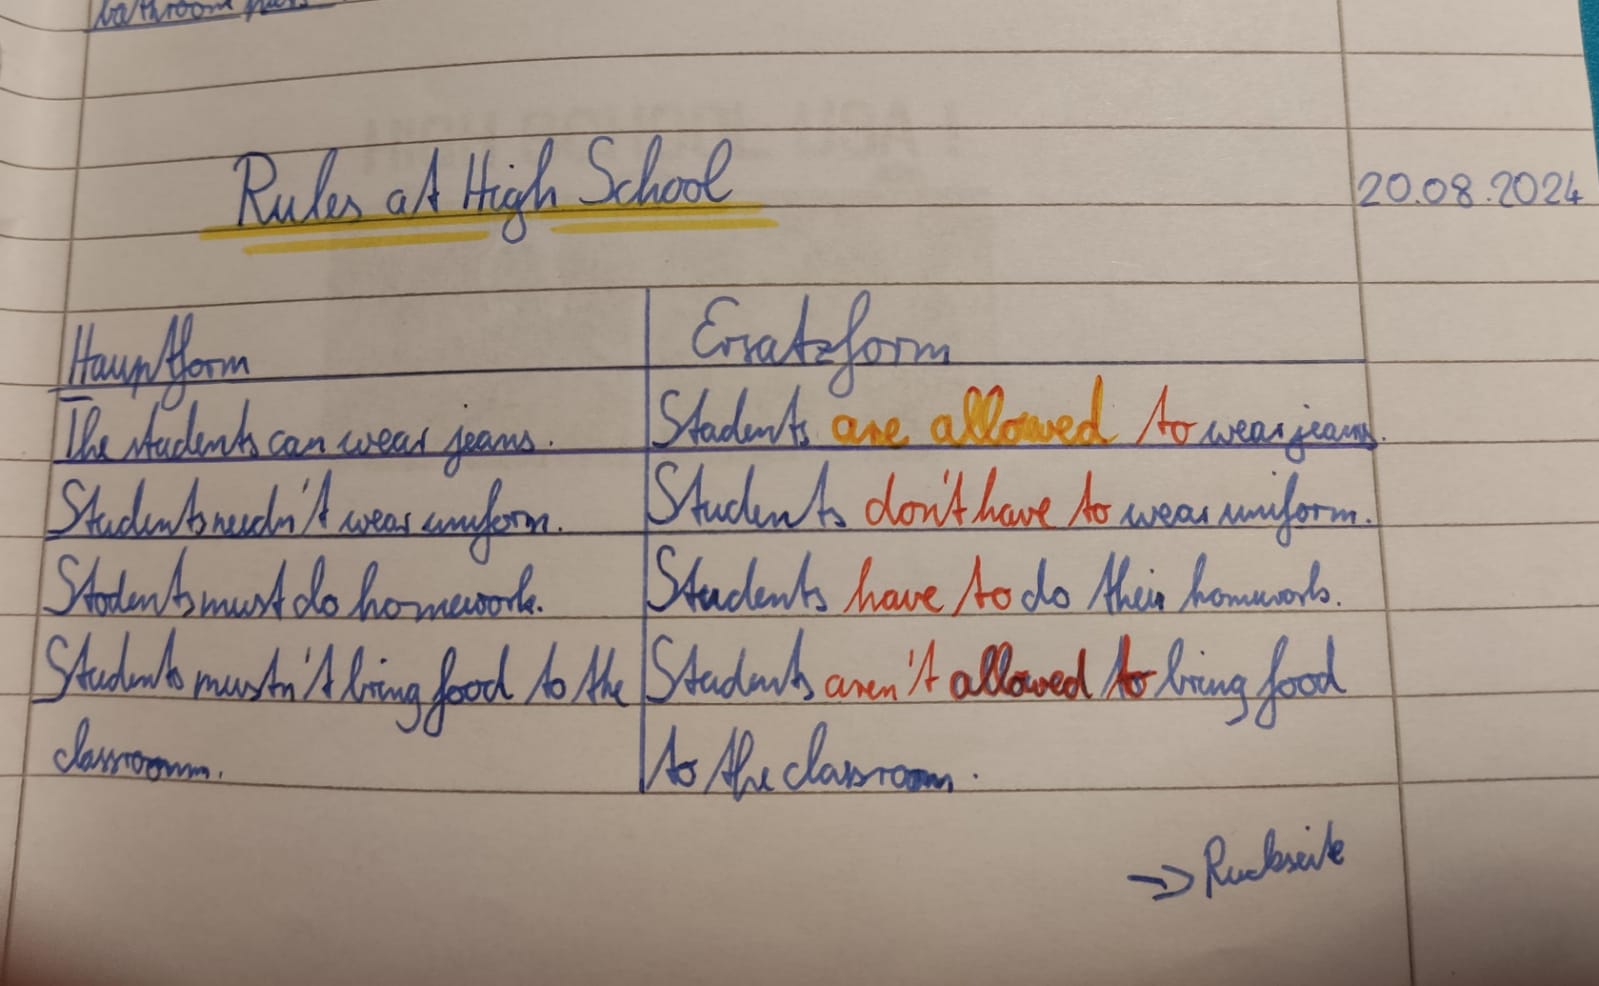 bathroom pass
Rules at High School
20.08.2024
Hauptform
Ersatzform
The students can wear jeans.
Students are allowed to wear jeans.
Students needn't wear uniform.
Students don't have to wear uniform.
Students must do homework.
Students have to do their homework.
Students mustn't bring food to the
classroom.
Students aren't allowed to bring food
to the classroom.
→ Rückseite